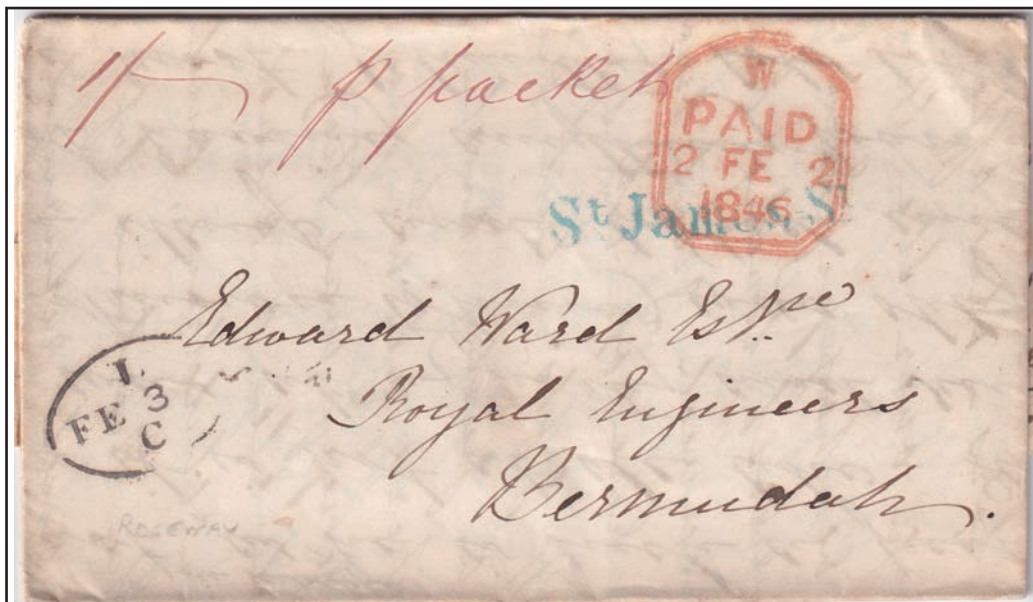 1/- p packet
W
PAID
2 FE 2
1846
St James St
Edward Ward Esqre
Royal Engineers
Bermudah.
L
FE 3
C